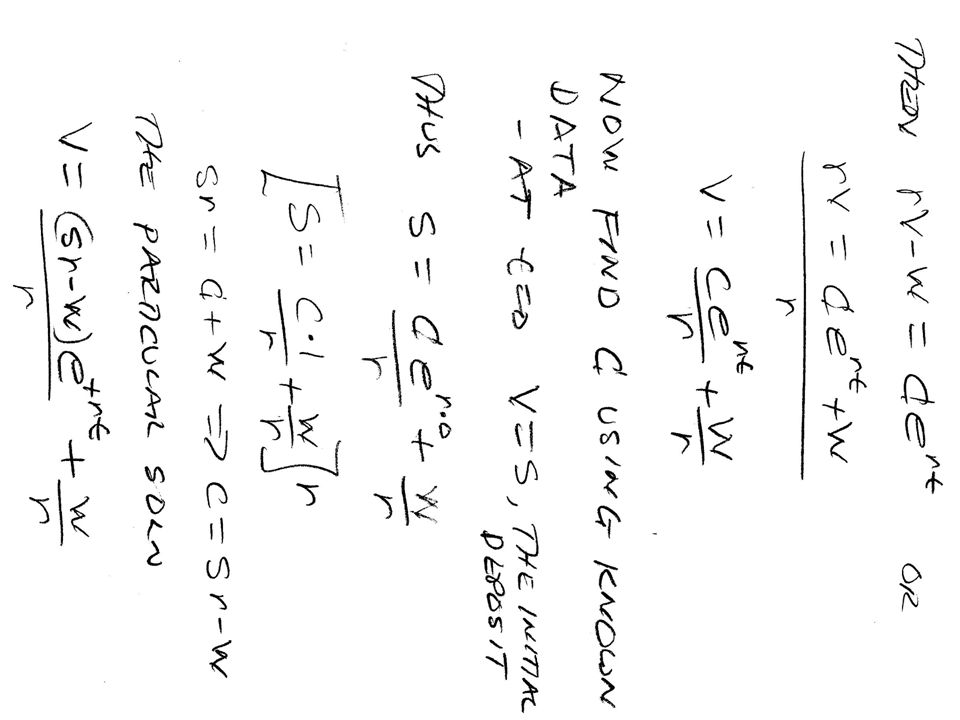 THEN rV - W = Ce^{rt} OR
rV = Ce^{rt} + W
r
V = Ce^{rt}/r + W/r
NOW FIND C USING KNOWN
DATA
- AT t=0 V=S, THE INITIAL
DEPOSIT
THUS S = Ce^{r·0}/r + W/r
[S = C·1/r + W/r] r
Sr = C + W => C = Sr - W
THE PARTICULAR SOLN
V = (Sr-W)e^{+rt}/r + W/r